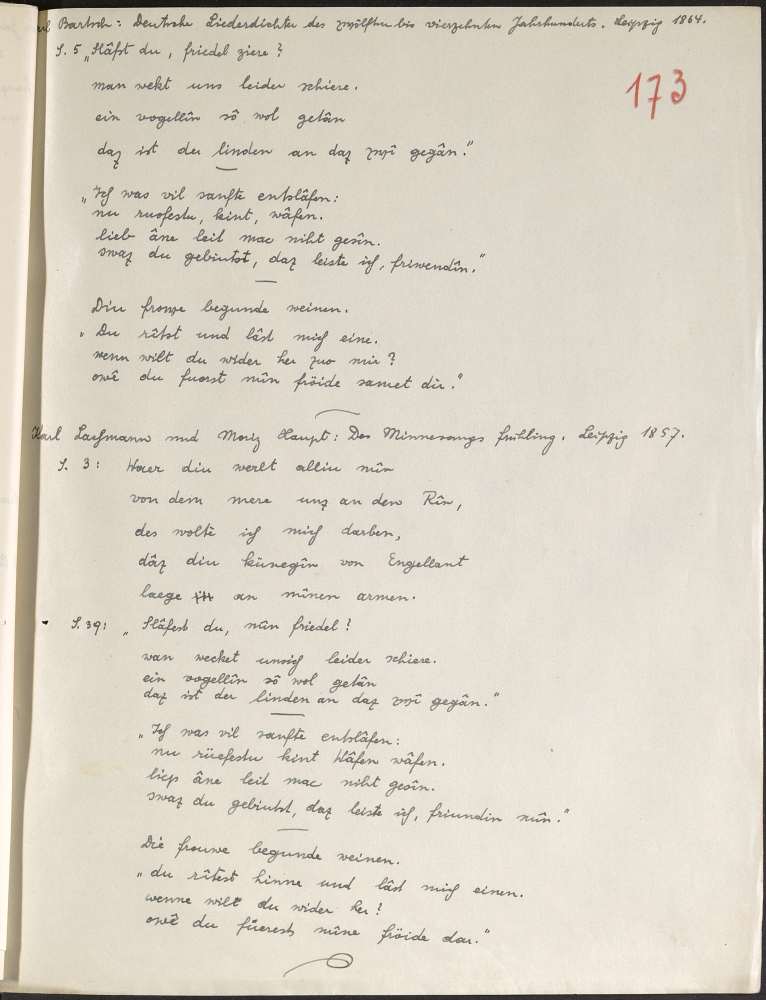 Bartsch: Deutsche Liederdichter des zwölften bis vierzehnten Jahrhunderts. Leipzig 1864.
173
S. 5 „Slâfst du, friedel ziere?
man wekt uns leider schiere.
ein vogellîn sô wol getân
daz ist der linden an daz zwî gegân."
„Ich was vil sanfte entslâfen:
nu ruofestu, kint, wâfen.
lieb âne leit mac niht gesîn.
swaz du gebiutst, daz leiste ich, friwendîn."
Diu frowe begunde weinen.
„Du rîtst und lâst mich eine.
wenn wilt du wider her zuo mir?
owê du fuorst mîn fröide samet dir."
Karl Lachmann und Moriz Haupt: Des Minnesangs Frühling. Leipzig 1857.
S. 3: Waer diu werlt alliu mîn
von dem mere unz an den Rîn,
des wolte ich mich darben,
daz diu künegîn von Engellant
laege an mînen armen.
S. 39: „Slâfest du, mîn friedel?
wan wecket unsich leider schiere.
ein vogellîn sô wol getân
daz ist der linden an daz zwî gegân."
„Ich was vil sanfte entslâfen:
nu rüefestu kint Wâfen wâfen.
liep âne leit mac niht gesîn.
swaz du gebiutst, daz leiste ich, friundin mîn."
Die frouwe begunde weinen.
„du rîtest hinne und lâst mich einen.
wenne wilt du wider her?
owê du füerest mîne fröide dar."